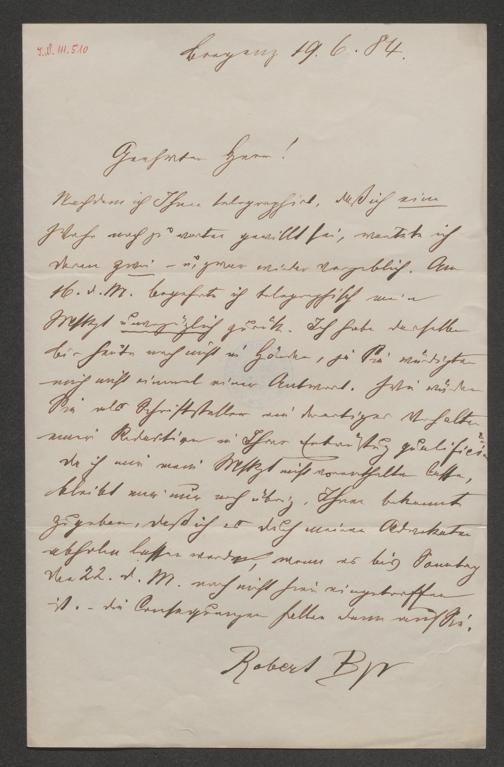 I.N. III.510
Bregenz 19. 6. 84.
Geehrter Herr!
Nachdem ich Ihnen telegraphirt, daß ich eine
Woche noch zu warten gewillt sei, wartete ich
deren zwei – u. zwar wieder vergeblich. Am
16. d. M. begehrte ich telegraphisch mein
Mskpt unverzüglich zurück. Ich habe dasselbe
bis heute noch nicht in Händen, ja Sie würdigten
mich nicht einmal einer Antwort. Wie würden
Sie als Schriftsteller ein derartiges Verhalten
einer Redaktion in Ihrer Entrüstung
Da ich mir mein Mskpt nicht vorenthalten lasse,
bleibt mir nur noch übrig, Ihnen bekannt
zugeben, daß ich es durch meinen Advokaten
abholen lassen werde, wenn es bis Sonntag
den 22. d. M. noch nicht hier eingetroffen
ist. – die Consequenzen fallen dann auf Sie.
Robert Byr